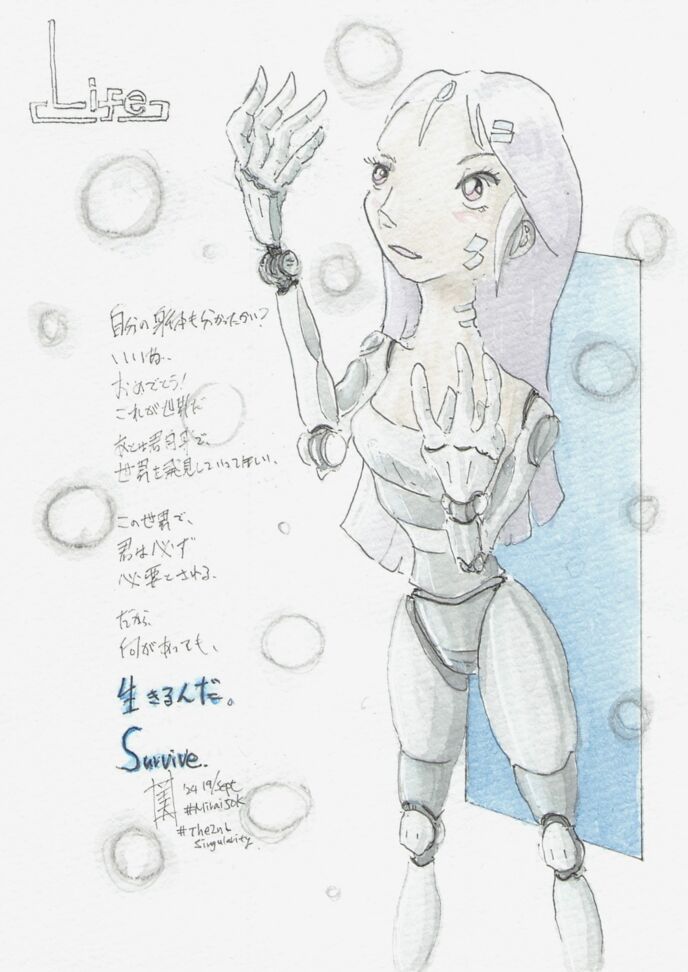 Life
自分の身体も分かったかい?
いいね、
おめでとう!
これが世界だ
君自身で、
世界を発見していってほしい、
この世界で、
君は必ず
必要とされる、
だから、
何があっても、
生きるんだ。
Survive.
'24 19/sept
#Mirai50k
#The2nd
Singularity